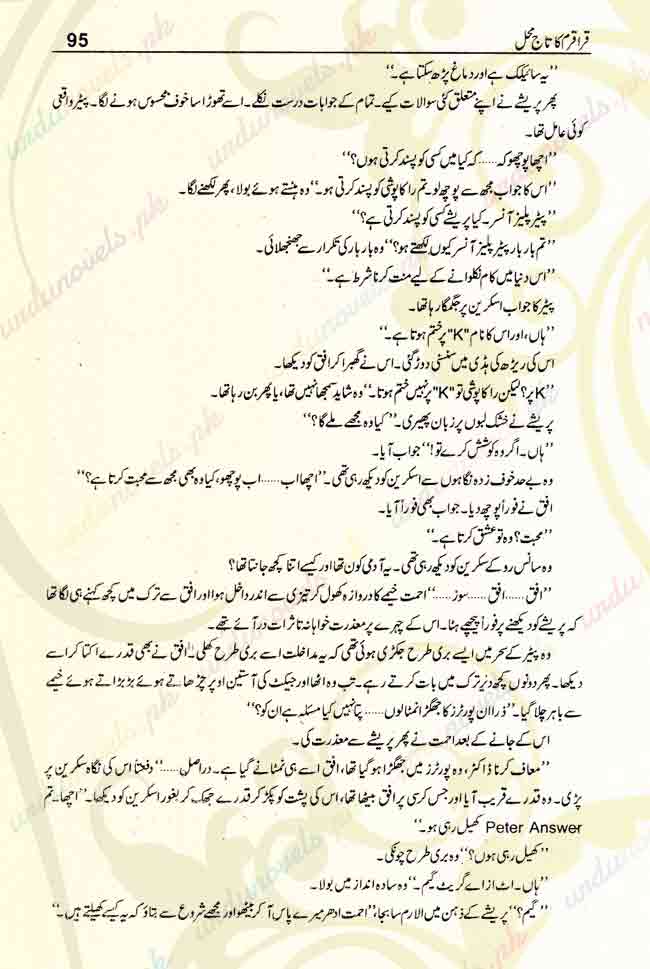 قراقرم کا تاج محل 95
’’یہ سائیکک ہے اور دماغ پڑھ سکتا ہے۔‘‘
پھر پریشے نے اپنے متعلق کئی سوالات کیے۔ تمام کے جوابات درست نکلے۔ اسے تھوڑا سا خوف محسوس ہونے لگا۔ پیٹر واقعی
کوئی عامل تھا۔
’’اچھا پوچھو کہ...... کہ کیا میں کسی کو پسند کرتی ہوں؟‘‘
’’اس کا جواب مجھ سے پوچھ لو۔ تم راکاپوشی کو پسند کرتی ہو۔‘‘ وہ ہنستے ہوئے بولا، پھر لکھنے لگا۔
’’پیٹر پلیز آنسر۔ کیا پریشے کسی کو پسند کرتی ہے؟‘‘
’’تم بار بار پیٹر پلیز آنسر کیوں لکھتے ہو؟‘‘ وہ بار بار کی تکرار سے جھنجھلائی۔
’’اس دنیا میں کام نکلوانے کے لیے منت کرنا شرط ہے۔‘‘
پیٹر کا جواب اسکرین پر جگمگا رہا تھا۔
’’ہاں، اور اس کا نام "K" پر ختم ہوتا ہے۔‘‘
اس کی ریڑھ کی ہڈی میں سنسنی دوڑ گئی۔ اس نے گھبرا کر افق کو دیکھا۔
’’K پر؟ لیکن راکاپوشی تو "K" پر نہیں ختم ہوتا۔‘‘ وہ شاید سمجھا نہیں تھا، یا پھر بن رہا تھا۔
پریشے نے خشک لبوں پر زبان پھیری۔ ’’کیا وہ مجھے ملے گا؟‘‘
’’ہاں۔ اگر وہ کوشش کرے تو!‘‘ جواب آیا۔
وہ بے حد خوف زدہ نگاہوں سے اسکرین کو دیکھ رہی تھی۔ ’’اچھا اب...... اب پوچھو، کیا وہ بھی مجھ سے محبت کرتا ہے؟‘‘
افق نے فوراً پوچھ دیا۔ جواب بھی فوراً آیا۔
’’محبت؟ وہ تو عشق کرتا ہے۔‘‘
وہ سانس روکے سکرین کو دیکھ رہی تھی۔ یہ آدمی کون تھا اور کیسے اتنا کچھ جانتا تھا؟
’’افق...... افق...... سوز......‘‘ احمت خیمے کا دروازہ کھول کر تیزی سے اندر داخل ہوا اور افق سے ترک میں کچھ کہنے ہی لگا تھا
کہ پریشے کو دیکھنے پر فوراً پیچھے ہٹا۔ اس کے چہرے پر معذرت خواہانہ تاثرات در آئے تھے۔
وہ پیٹر کے سحر میں ایسے بری طرح جکڑی ہوئی تھی کہ یہ مداخلت اسے بری طرح کھلی۔ افق نے بھی قدرے اکتا کر اسے
دیکھا۔ پھر دونوں کچھ دیر ترک میں بات کرتے رہے۔ تب وہ اٹھا اور جیکٹ کی آستین اوپر چڑھاتے ہوئے بڑبڑاتے ہوئے خیمے
سے باہر چلا گیا۔ ’’ذرا ان پورٹرز کا جھگڑا نمٹا لوں...... پتا نہیں کیا مسئلہ ہے ان کو؟‘‘
اس کے جانے کے بعد احمت نے پھر پریشے سے معذرت کی۔
’’معاف کرنا ڈاکٹر، وہ پورٹرز میں جھگڑا ہو گیا تھا، افق اسے ہی نمٹانے گیا ہے۔ دراصل......‘‘ دفعتاً اس کی نگاہ سکرین پر
پڑی۔ وہ قدرے قریب آیا اور جس کرسی پر افق بیٹھا تھا، اس کی پشت کو پکڑ کر قدرے جھک کر بغور اسکرین کو دیکھا۔ ’’اچھا۔ تم
Peter Answer کھیل رہی ہو۔‘‘
’’کھیل رہی ہوں؟‘‘ وہ بری طرح چونکی۔
’’ہاں۔ اٹ از اے گریٹ گیم۔‘‘ وہ سادہ انداز میں بولا۔
’’گیم؟‘‘ پریشے کے ذہن میں الارم سا بجا، ’’احمت ادھر میرے پاس آ کر بیٹھو اور مجھے شروع سے بتاؤ کہ یہ کیسے کھیلتے ہیں۔‘‘
urdunovels.pk